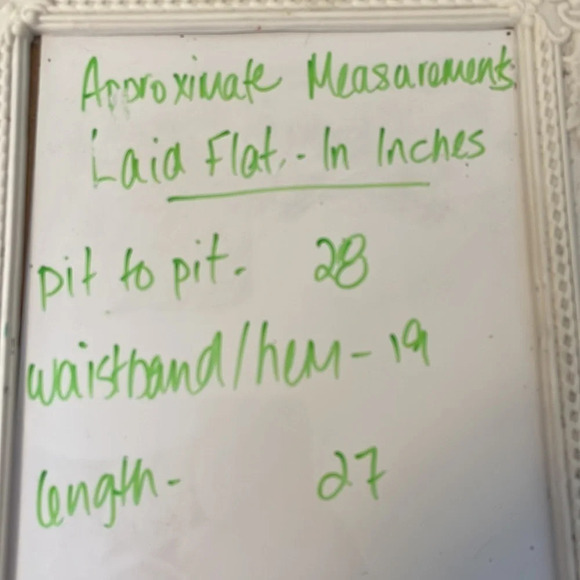 Approximate Measurements
Laid Flat. - In Inches
pit to pit - 28
waistband/hem - 19
length - 27